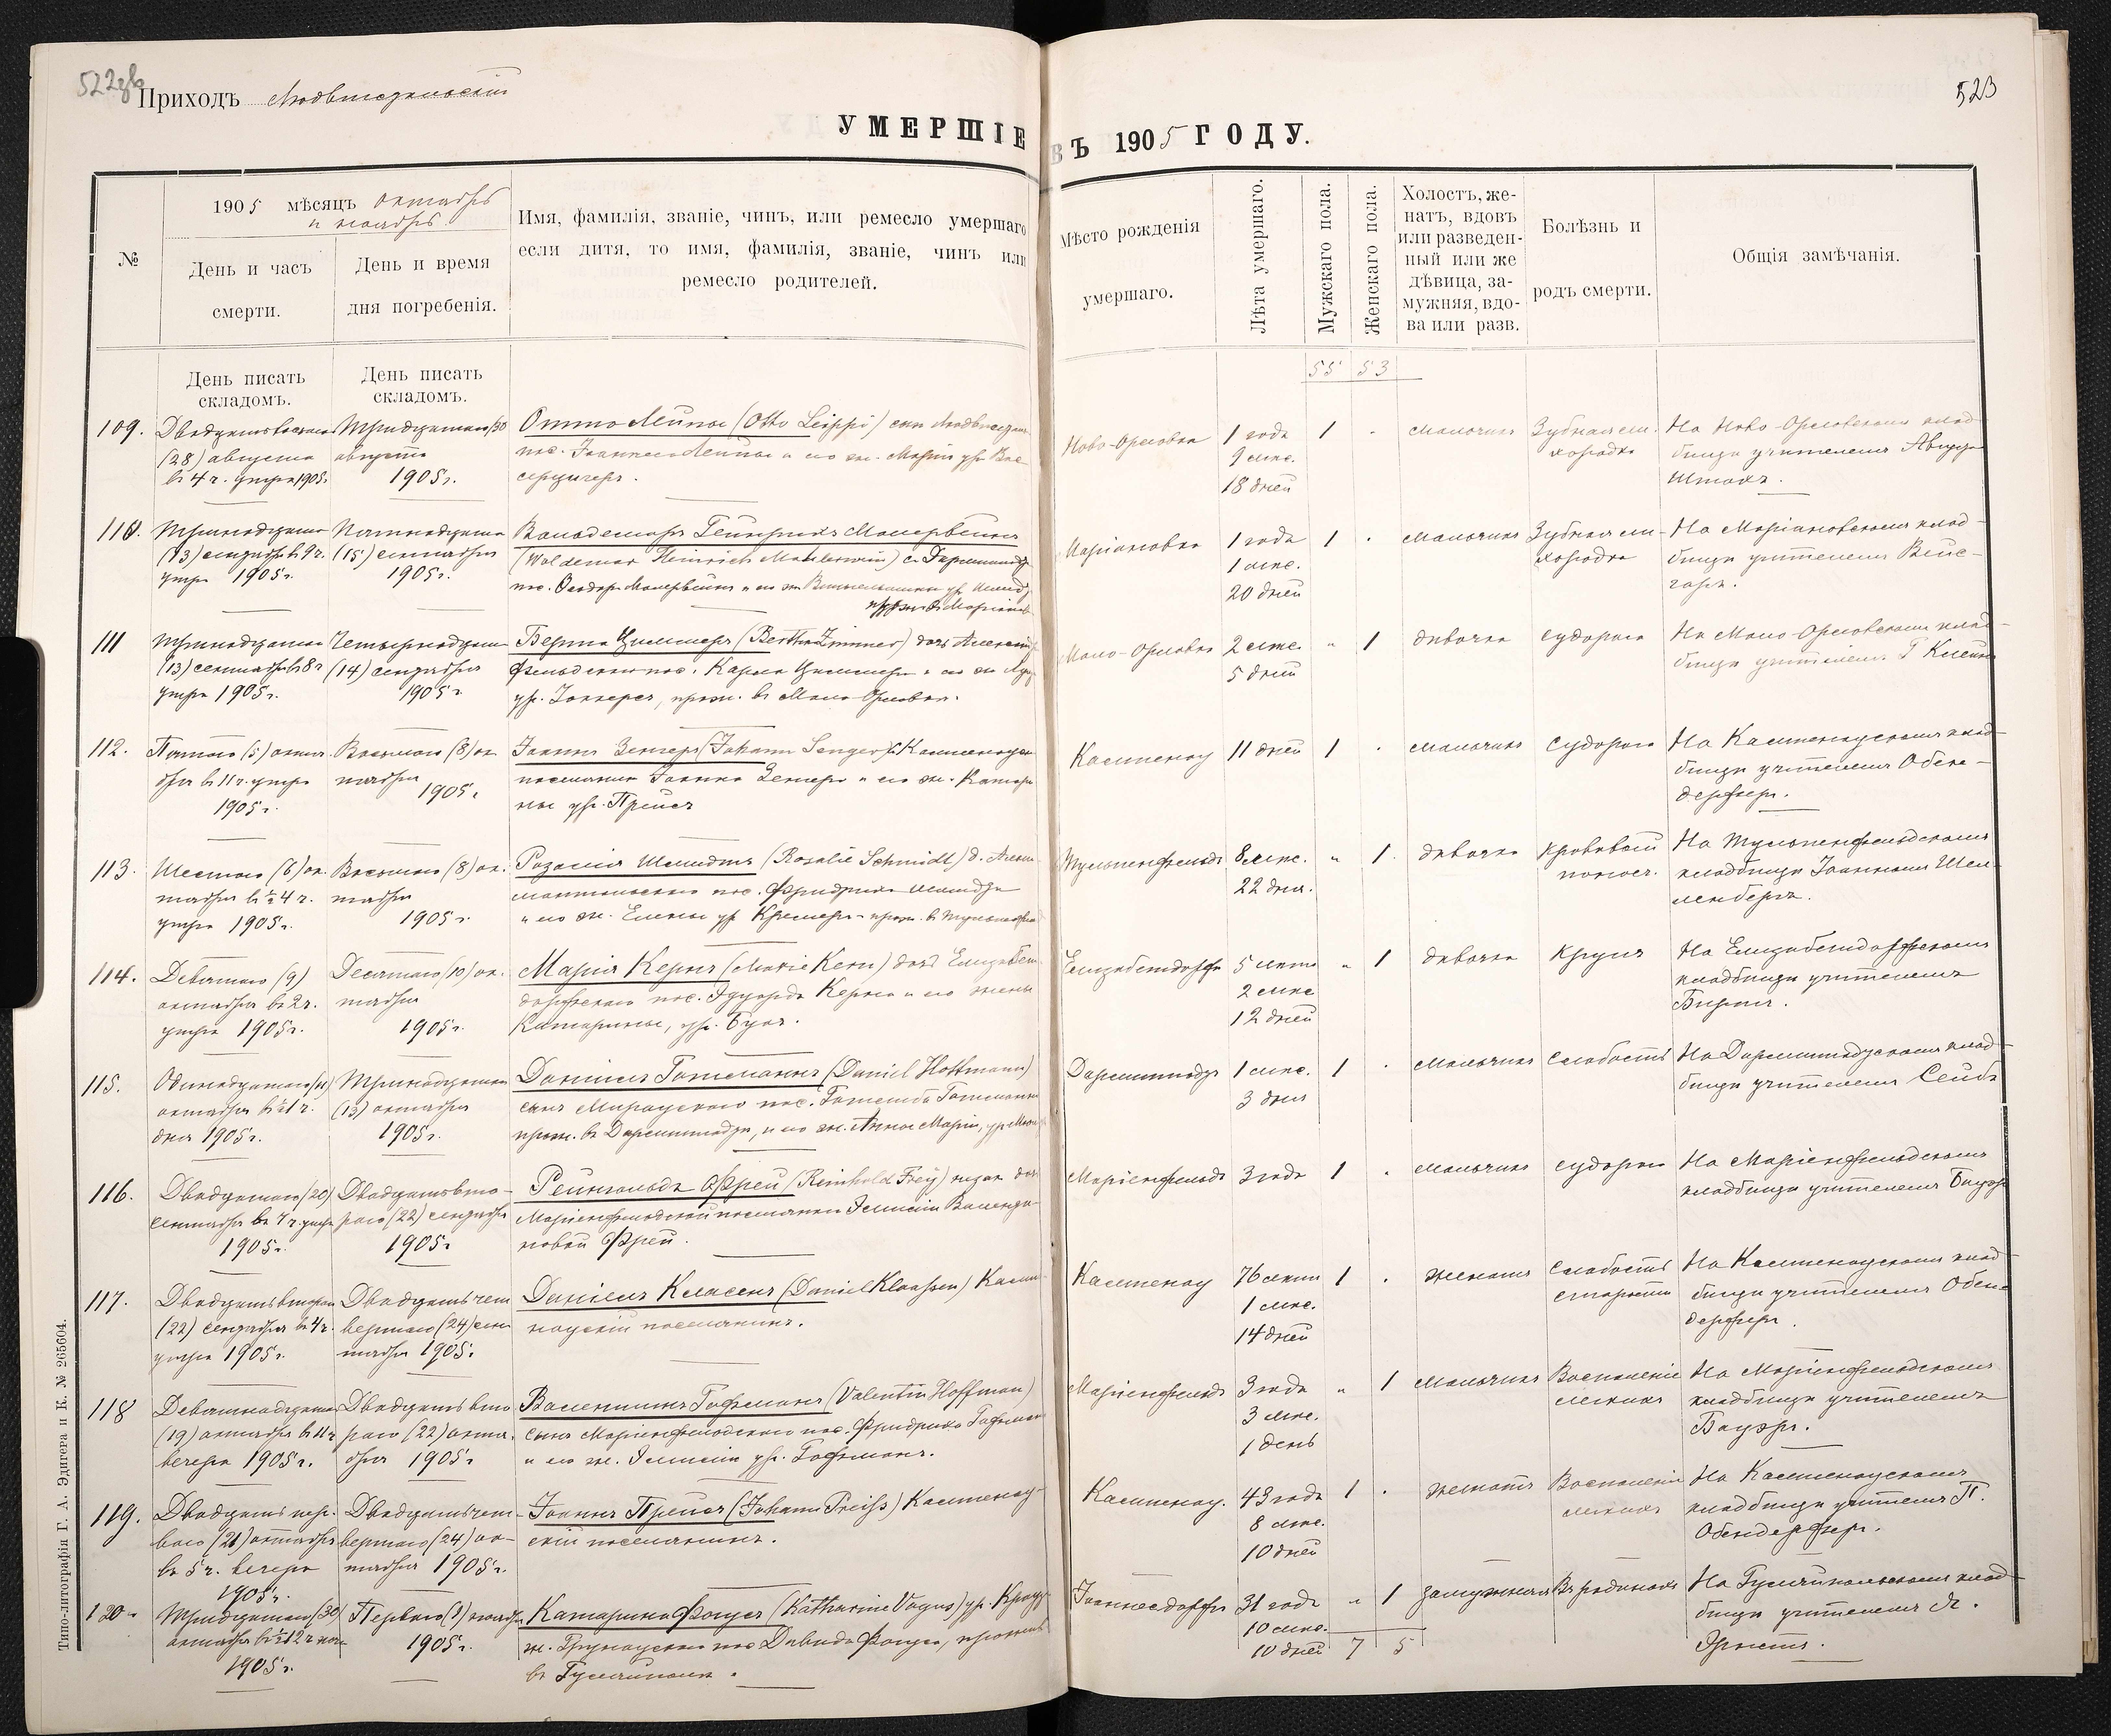 522об
Приходъ Людвигстальскій
523
УМЕРШІЕ ВЪ 1905 ГОДУ.
№
1905 мѣсяцъ октябрь
и ноябрь.
День и часъ
смерти.
День и время
дня погребенія.
Имя, фамилія, званіе, чинъ, или ремесло умершаго
если дитя, то имя, фамилія, званіе, чинъ или
ремесло родителей.
Мѣсто рожденія
умершаго.
Лѣта умершаго.
Мужскаго пола.
Женскаго пола.
Холостъ, же-
натъ, вдовъ
или разведен-
ный или же
дѣвица, за-
мужняя, вдо-
ва или разв.
Болѣзнь и
родъ смерти.
Общія замѣчанія.
День писать
складомъ.
День писать
складомъ.
55 53
109.
(28) августа
въ 4 ч. утра 1905г.
Тридцатаго (30
августа
1905г.
Отто Лейппе (Otto Leippi) сынъ
пос. Іоганнеса Лейппе и его ж. Маріи ур.
Ново-Орловка
1 годъ
9 мѣс.
18 дней
1
мальчикъ
Зубная ли-
хорадка
На Ново-Орловскомъ клад-
бищѣ учителемъ
Штахъ.
110.
Тринадцатаго
(13) сентября въ 9 ч.
утра 1905г.
Пятнадцатаго
(15) сентября
1905г.
Вальдемаръ Гейнрихъ
(Waldemar Heinrich
Маріановка
1 годъ
1 мѣс.
20 дней
1
мальчикъ
Зубная ли-
хорадка
На Маріановскомъ клад-
бищѣ учителемъ Вейс-
гаръ.
111
Тринадцатаго
(13) сентября въ 8 ч
утра 1905г.
Четырнадцатаго
(14) сентября
1905г
Берта Циммеръ (Bertha Zimmer) дочь
пос. Карла Циммеръ и его ж.
ур. прож. въ Мало-Орловкѣ.
Мало-Орловка
2 мѣс.
5 дней
1
дѣвочка
судорога
На Мало-Орловскомъ клад-
бищѣ учителемъ Г
112.
Пятаго (5) октя-
бря въ 11 ч. утра
1905г.
Восьмаго (8) ок-
тября
1905г
Іоганнъ Зенгеръ (Johann Senger) с. Кампенауск
поселянина Іоганна Зенгеръ и его ж. Катари-
ны ур. Прейсъ
Кампенау
11 дней
1
мальчикъ
судорога
На Кампенаускомъ клад-
бищѣ учителемъ Обен-
дерферъ.
113.
Шестаго (6) ок-
тября въ ½ 4 ч.
утра 1905г.
Восьмаго (8) ок-
тября
1905г
Розалія Шмидтъ (Rosalie Schmidt) д.
пос. Фридриха Шмидта
и его ж. Елены ур. Кремеръ прож. въ
Тульпенфельдъ
8 мѣс.
22 дня.
1.
дѣвочка
кровавый
поносъ.
На Тульпенфельдскомъ
кладбищѣ Іоганномъ Шел-
ленбергъ.
114.
Девятаго (9)
октября въ 2 ч.
утра 1905г.
Десятаго (10) ок-
тября
1905г.
Марія Кернъ (Marie Kern) дочь Елизабет-
дорфскаго пос. Эдуарда Кернъ и его жены
Катарины, ур. Бухъ.
Елизабетдорфъ
5 лѣтъ
2 мѣс
12 дней
1
дѣвочка
Крупъ
На Елизабетдорфскомъ
кладбищѣ учителемъ
115.
Одиннадцатаго (11)
октября въ ½ 1 ч.
дня 1905г.
Тринадцатаго
(13) октября
1905г.
Даніилъ Готтманнъ (Daniel Hottmann)
сынъ Мирауского пос. Готлиба Готтманнъ
прож. въ Дармштадтѣ, и его ж. Анны Маріи,
Дармштадтъ
1 мѣс.
3 дня
1
мальчикъ
слабость
На Дармштадтскомъ клад-
бищѣ учителемъ Сейбъ
116.
Двадцатаго (20)
сентября въ 4 ч. утра
1905г.
Двадцать вто-
раго (22) сентября
1905г
Рейнгольдъ Фрей (Reinhold Frey)
Маріенфельдской поселянки Эмиліи Валенти-
новой Фрей.
Маріенфельдъ
3 года
1
мальчикъ
судорога
На Маріенфельдскомъ
кладбищѣ учителемъ Бауэръ
117.
Двадцать втораго
(22) сентября въ 4 ч.
утра 1905г.
Двадцать чет-
вертаго (24) сен-
тября 1905г.
Даніилъ Класенъ (Daniel Klaassen) Кампе-
наускій поселянинъ.
Кампенау
76 лѣтъ
1 мѣс.
14 дней
1
женатъ
слабость
старости
На Кампенаускомъ клад-
бищѣ учителемъ Обен-
дерферъ.
118
Девятнадцатаго
(19) октября въ 11 ч
вечера 1905г.
Двадцать вто-
раго (22) октя-
бря 1905г
Валентинъ Гофманъ (Valentin Hoffman)
сынъ Маріенфельдскаго пос. Фридриха Гофманъ
и его ж. Эмиліи ур. Гофманъ.
Маріенфельдъ
3 года
3 мѣс.
1 день
1
мальчикъ
Воспаленіе
легкихъ
На Маріенфельдскомъ
кладбищѣ учителемъ
Бауэръ.
119.
Двадцать пер-
ваго (21) октября
въ 5 ч. вечера
1905г.
Двадцать чет-
вертаго (24) ок-
тября 1905г.
Іоганнъ Прейсъ (Johann Preiss) Кампенау-
скій поселянинъ.
Кампенау.
43 года
8 мѣс.
10 дней
1
женатъ
Воспаленіе
легкихъ
На Кампенаускомъ
кладбищѣ учителемъ П.
Обендерферъ.
120.
Тридцатаго (30)
октября въ ½ 12 ч ночи
1905г.
Перваго (1) ноября
1905г.
Катарина Фогусъ (Katharine Vogus) ур.
ж. Грунауского пос Давида Фогусъ,
въ Гуляйполѣ.
Іоганнесдорфъ
31 годъ
10 мѣс.
10 дней
1
замужняя
Въ родинахъ
На Гуляйпольскомъ клад-
бищѣ учителемъ Я.
Эрнстъ.
7 5
Типо-литографія Г. А. Эдигера и К. № 265604.